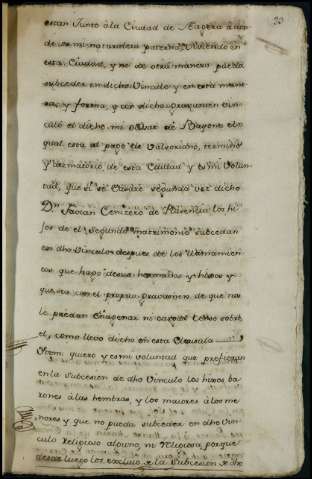 20
estan Junto ala Ciudad de Naxera a don
de es mi naturaleza paterna, Viviendo en
esta Ciudad, y no de otra manera pueda
subceder en dicho Vinculo y en esta mane
ra, y forma, y con dicho gravamen vin
culo el dicho mi
qual esta al pago de termino
y dezmatorio de esta Ciudad y es mi Volun
tad, que si se Casare segunda vez dicho
Dn. de Plasencia los hi
jos de el Segundo matrimonio subcedan
en dho Vinculo despues de los llamamien
tos que hago de sus hermanos y hijos y
que sea con el propio gravamen de que no
le puedan Enagenar ni cargar Censo sobre
el, como llevo dicho en esta Clausula
Ytem quiero y es mi voluntad que prefieran
en la Subcesion de dho Vinculo los hijos ba
rones a las hembras, y los maiores a los me
nores y que no pueda subceder en dho Vin
culo Religioso alguno, ni Religiosa porque
desde luego los excluio de la Subcesion de dho